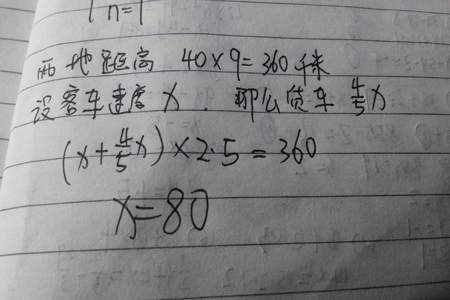 n=1
两地距离 40×9=360千米
设客车速度x. 那么货车 4/5x
(x+4/5x)×2.5=360
x=80